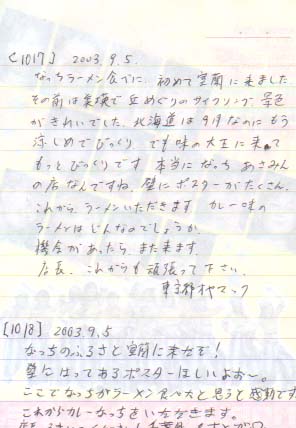 [1017] 2003.9.5.
なっちラーメン食べに、初めて室蘭に来ました
その前は美瑛で丘めぐりのサイクリング 景色
がきれいでした。北海道は9月なのにもう
涼しめでびっくり でも味の大王に来て
もっとびっくりです 本当になっち あさみん
の店なんですね。壁にポスターがたくさん。
これから、ラーメンいただきます カレー味の
ラーメンとはどんなのでしょうか。
機会があったら、また来ます。
店長、これからも頑張って下さい。
東京都オヤマック
[1018] 2003.9.5
なっちのふるさと室蘭に来たぞ!
壁にはってあるポスターほしいよぉ〜。
ここでなっちがラーメン食べたと思うと感動です
これからカレーなっちをいただきます。